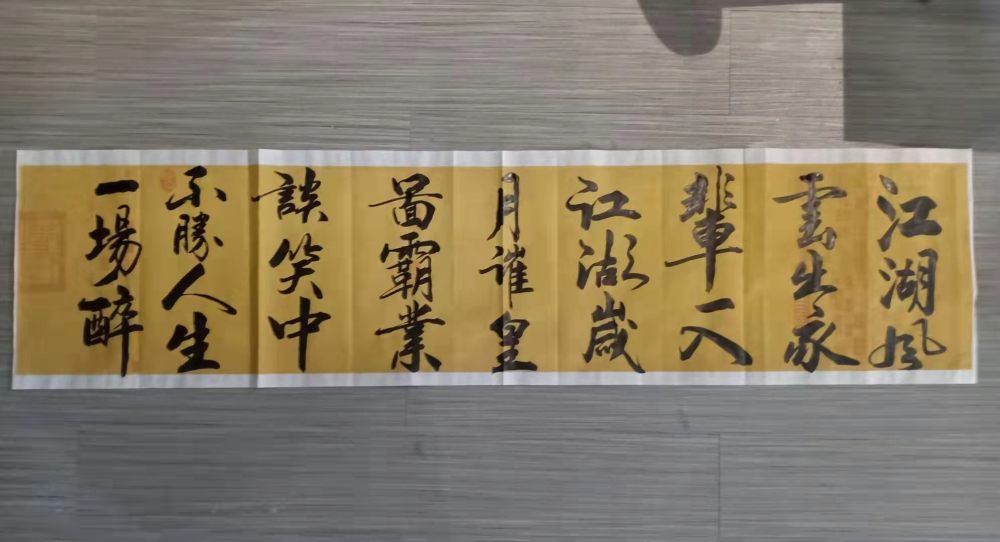 江湖風
雲出我
輩一入
江湖歲
月催皇
圖霸業
談笑中
不勝人生
一場醉